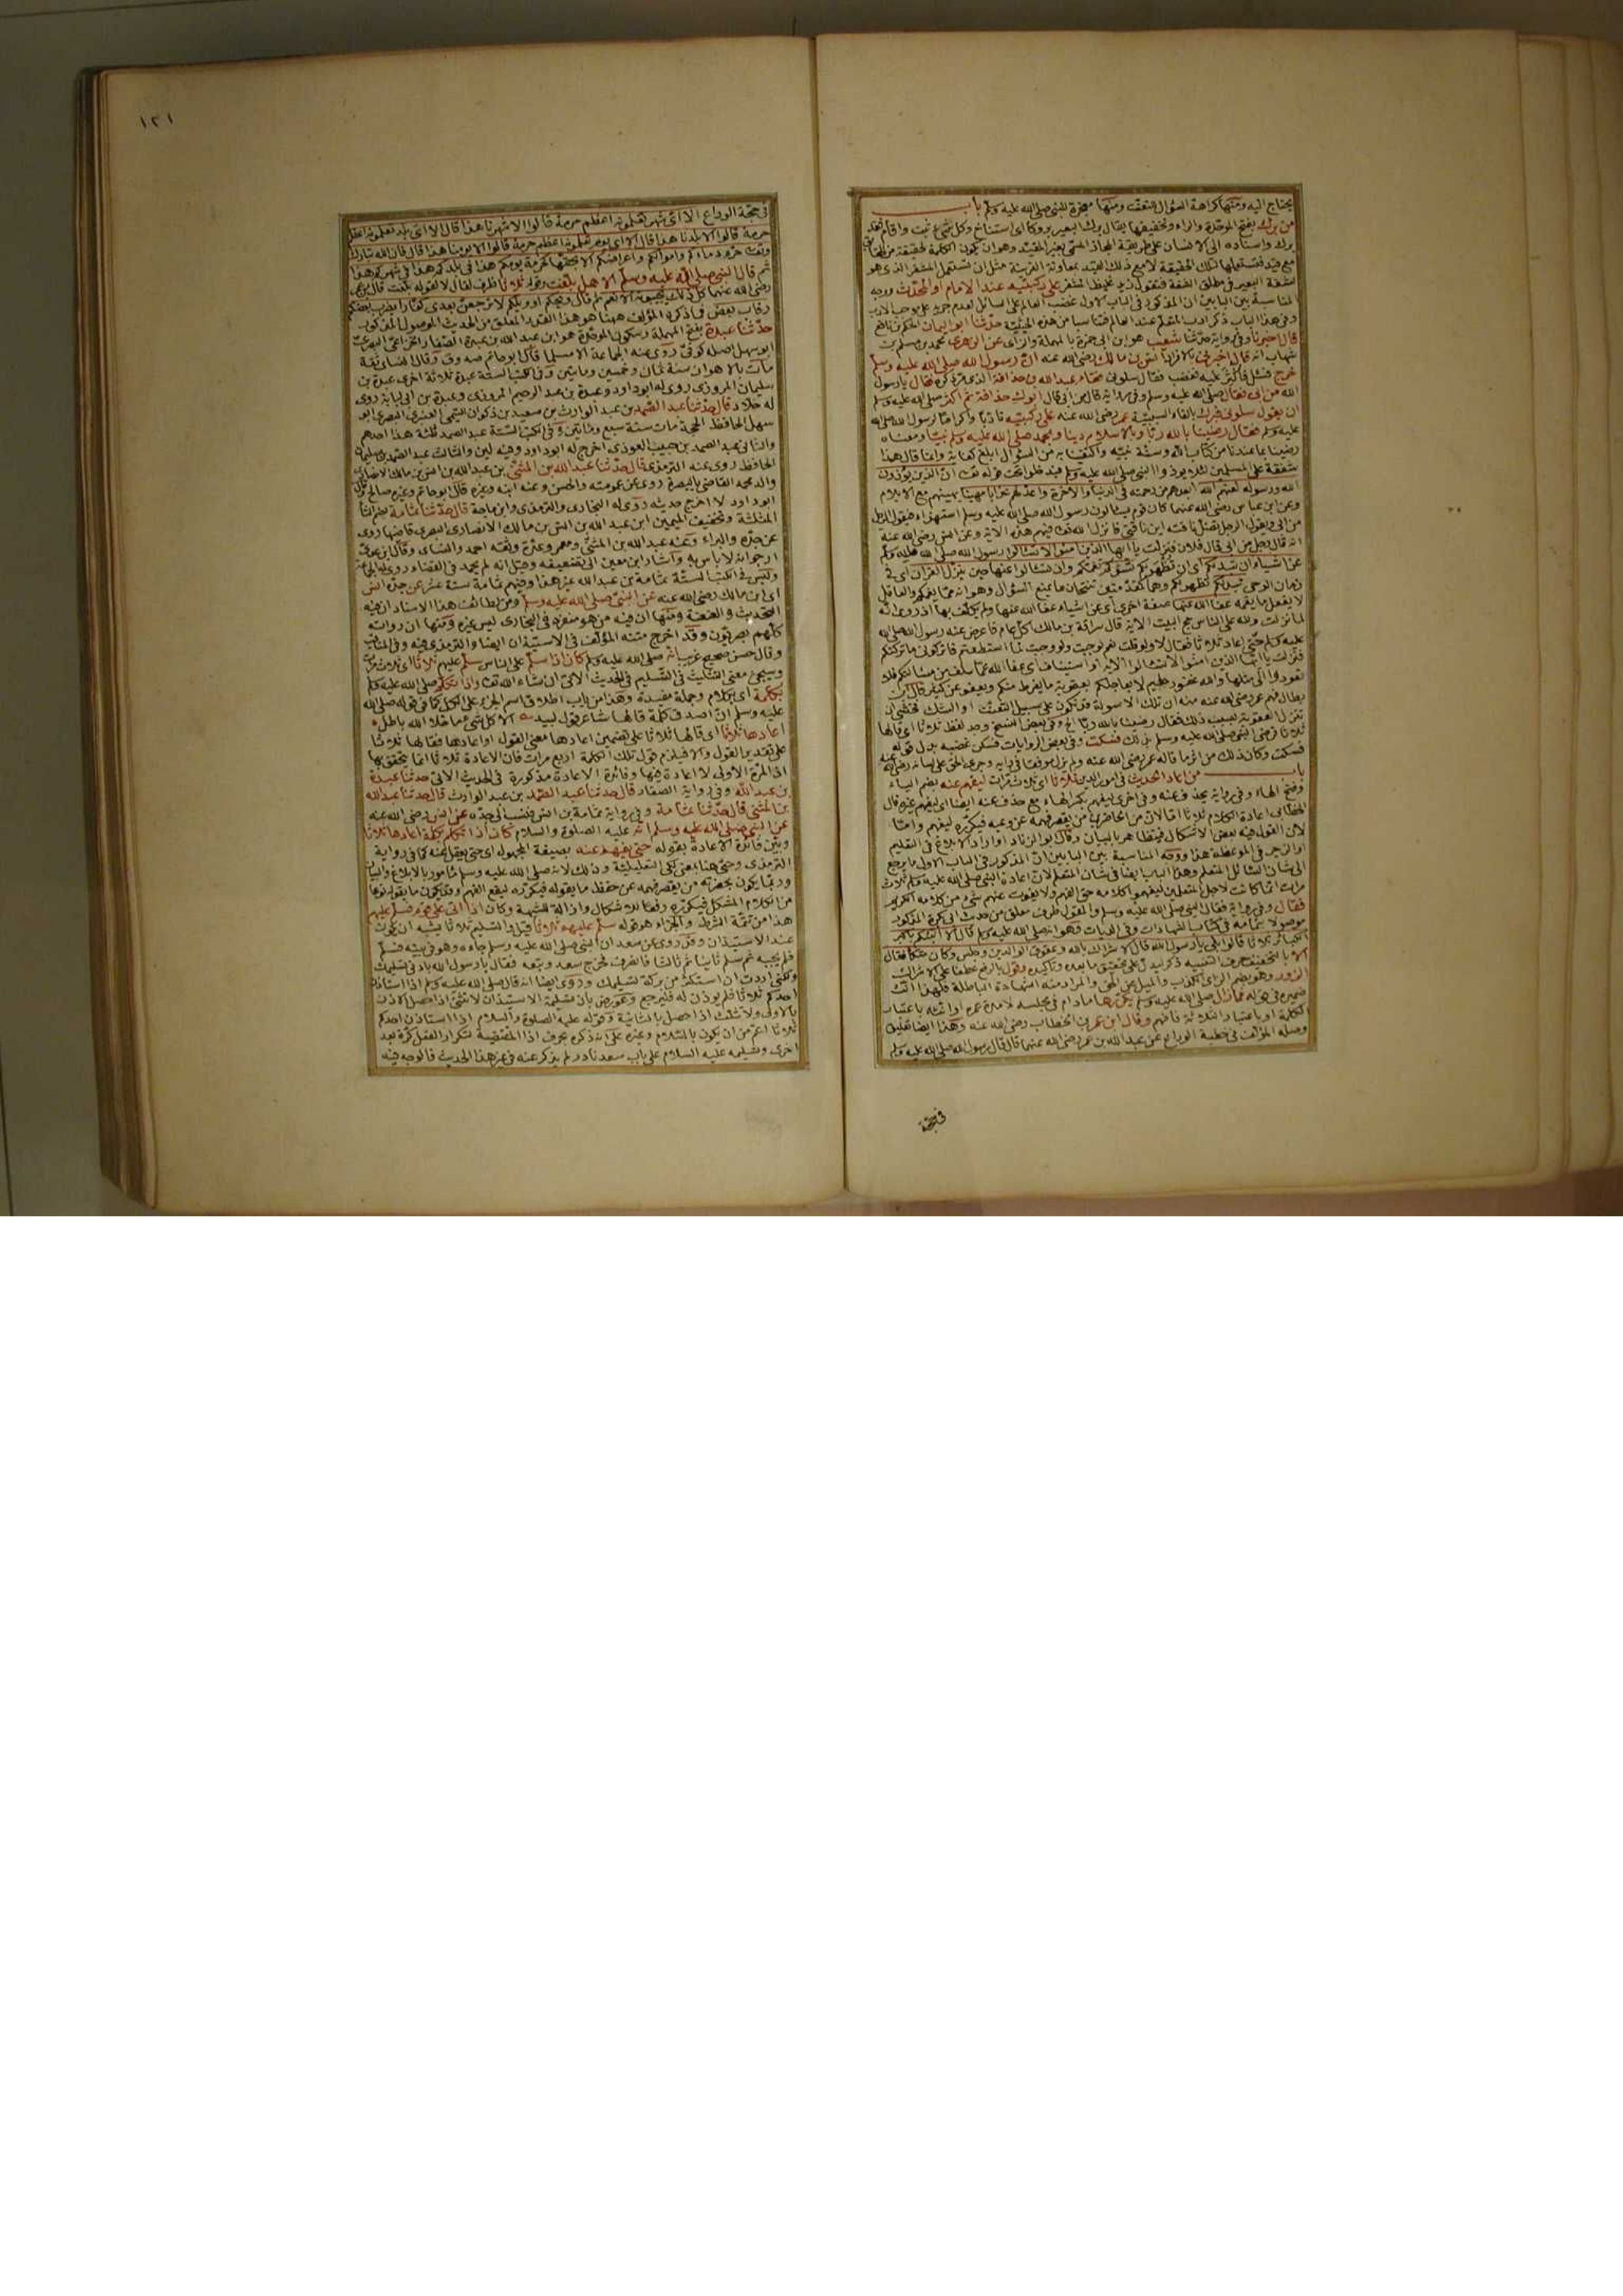 يحتاج اليه ومنها كراهة السؤال للتعنت ومنها معجزة للنبي صلى الله عليه وسلم باب
من برك بفتح الموحدة والراء وتخفيفها يقال برك البعير بروكا اى استناخ وكل شئ ثبت واقام فقد
برك واسناده الى الانسان على طريقة المجاز المسمى بغير المقيد وهو ان يكون الكلمة لحقيقة من الحقائق
مع قيد فتستعملها لتلك الحقيقة لا مع ذلك القيد بمعاونة القرينة مثل ان تستعمل المشفر الذى هو
لشفة البعير فى مطلق الشفة فتقول زيد غليظ المشفر على ركبتيه عند الامام او المحدث ووجه
المناسبة بين البابين ان المذكور فى الباب الاول غضب العالم على السائل لعدم جريه على موجب الادب
وفى هذا الباب ذكر ادب المتعلم عند العالم فتناسبا من هذه الحيثية حدثنا ابو اليمان الحكم بن نافع
قال اخبرنا وفى رواية حدثنا شعيب هو ابن ابى حمزة بالمهملة والزاى عن الزهرى محمد بن مسلم بن
شهاب انه قال اخبرنى بالافراد انس بن مالك رضى الله عنه ان رسول الله صلى الله عليه وسلم
خرج فسئل فاكثر عليه فغضب فقال سلونى فقام عبد الله بن حذافة فقال يا رسول
الله من ابى فقال صلى الله عليه وسلم وفى رواية قال من ابى قال ابوك حذافة ثم اكثر صلى الله عليه وسلم
ان يقول سلونى فبرك بالفاء السببية عمر رضى الله عنه على ركبتيه تادبا واكراما لرسول الله صلى الله
عليه وسلم فقال رضينا بالله ربا وبالاسلام دينا وبمحمد صلى الله عليه وسلم نبيا ومعناه
رضينا بما عندنا من كتاب الله وسنة نبيه واكتفينا به من السؤال ابلغ كفاية وانما قال هذا
شفقة على المسلمين لئلا يوذوا النبى صلى الله عليه وسلم فيدخلوا تحت قوله تعالى ان الذين يؤذون
الله ورسوله لعنهم الله ابعدهم من رحمته فى الدنيا والاخرة واعد لهم عذابا مهينا يهينهم مع الايلام
وعن ابن عباس رضى الله عنهما كان قوم يسالون رسول الله صلى الله عليه وسلم استهزاء فيقول الرجل
من ابى ويقول الرجل تضل ناقته اين ناقتى فانزل الله تعالى فيهم هذه الاية وعن انس رضى الله عنه
انه قال رجل من ابى قال فلان فنزلت يا ايها الذين امنوا لا تسالوا رسول الله صلى الله عليه وسلم
عن اشياء ان تبد لكم اى ان تظهر لكم تسؤكم تغمكم وان تسالوا عنها حين ينزل القرآن اى فى
زمان الوحى تبد لكم تظهر لكم وهما كمقدمتين تنتجان ما يمنع السؤال وهو انه مما يغمكم والعاقل
لا يفعل ما يغمه عفا الله عنها صفة اخرى اى عن اشياء عفا الله عنها ولم يكلف بها اذ روى انه
لما نزلت ولله على الناس حج البيت الاية قال سراقة بن مالك اكل عام فاعرض عنه رسول الله صلى الله
عليه وسلم حتى اعاد ثلاثا فقال لا ولو قلت نعم لوجبت ولو وجبت لما استطعتم فاتركونى ما تركتكم
فنزلت يا ايها الذين امنوا لا تسالوا الاية او استيناف اى عفا الله عما سلف من مسائلكم فلا
تعودوا الى مثلها والله غفور حليم لا يعاجلكم بعقوبة ما يفرط منكم ويعفو عن كثير قال ابن
بطال فهم عمر رضى الله عنه منه ان تلك الاسولة قد تكون على سبيل التعنت او الشك فخشى ان
تنزل العقوبة بسبب ذلك فقال رضينا بالله ربا الخ وفى بعض النسخ وجد لفظ ثلاثا اى قالها
ثلاثا فرضى النبى صلى الله عليه وسلم بذلك فسكت وفى بعض الروايات فسكن غضبه بدل قوله
فسكت وكان ذلك من اثر ما قاله عمر رضى الله عنه ولم يزل موفقا فى رايه وجرى الحق على لسانه رضى الله عنه
باب من اعاد الحديث فى امور الدين ثلاثا اى ثلاث مرات ليفهم عنه بضم الياء
وفتح الهاء وفى رواية بحذف عنه وفى اخرى ليفهم بكسر الهاء مع حذف عنه ايضا اى ليفهم غيره قال
الخطابى اعادة الكلام ثلاثا اما لان من الحاضرين من يقصر فهمه عن وعيه فيكرره ليفهم واما
لان القول فيه بعض الاشكال فيتظاهر بالبيان وقال ابو الزناد او اراد الابلاغ فى التعليم
او الزجر فى الموعظة هذا ووجه المناسبة بين البابين ان المذكور فى الباب الاول ما يرجع
الى شان السائل المتعلم وهذا الباب ايضا فى شان المتعلم لان اعادة النبى صلى الله عليه وسلم ثلاث
مرات انما كانت لاجل المتعلمين ليفهموا كلامه حق الفهم ولا يفوت عنهم شئ من كلامه الكريم
فقال وفى رواية فقال النبى صلى الله عليه وسلم والمقول طرف معلق من حديث ابى بكرة المذكور
موصولا بتمامه فى كتاب الشهادات وفى الديات فهو انه صلى الله عليه وسلم قال الا انبئكم باكبر
الكبائر ثلاثا قالوا بلى يا رسول الله قال الاشراك بالله وعقوق الوالدين وجلس وكان متكئا فقال
الا بالتخفيف حرف التنبيه ذكر ليدل على تحقيق ما بعده وتاكيده وقول بالرفع عطفا على الاشراك
الزور وهو بضم الزاى الكذب والميل عن الحق والمراد منه الشهادة الباطلة فلهذا انث
ضميره فى قوله فما زال صلى الله عليه وسلم يكررها ما دام فى مجلسه لا مدة عمره او انثه باعتبار
الكلمة او باعتبار الثلاثة فافهم وقال ابن عمر بن الخطاب رضى الله عنه وهذا ايضا تعليق
وصله المؤلف فى خطبة الوداع عن عبد الله بن عمر رضى الله عنهما قال قال رسول الله صلى الله عليه وسلم
فى حجة
١٢١
فى حجة الوداع الا اى شهر تعلمونه اعظم حرمة قالوا الا شهرنا هذا قال الا اى بلد تعلمونه اعظم
حرمة قالوا الا بلدنا هذا قال الا اى يوم تعلمونه اعظم حرمة قالوا الا يومنا هذا قال فان الله تبارك
وتعالى حرم دماءكم واموالكم واعراضكم الا بحقها كحرمة يومكم هذا فى بلدكم هذا فى شهركم هذا
ثم قال النبى صلى الله عليه وسلم الا هل بلغت وقوله ثلاثا ظرف لقال لا لقوله بلغت قال ابن عمر
رضى الله عنهما كل ذلك يجيبونه الا نعم ثم قال ويحكم او ويلكم لا ترجعن بعدى كفارا يضرب بعضكم
رقاب بعض فما ذكره المؤلف ههنا هو هذا القدر المعلق من الحديث الموصول المذكور
حدثنا عبدة بفتح المهملة وسكون الموحدة هو ابن عبد الله بن عبدة الصفار الخزاعى البصرى
ابو سهل اصله كوفى روى عنه الجماعة الا مسلما قال ابو حاتم صدوق وقال النسائى ثقة
مات بالاهواز سنة ثمان وخمسين ومايتين وفى الكتب الستة عبدة ثلاثة اخرى عبدة بن
سليمان المروزى روى له ابو داود وعبدة بن عبد الرحيم المروزى وعبدة بن ابى لبابة روى
له خلا د قال حدثنا عبد الصمد بن عبد الوارث بن سعيد بن ذكوان التميمى العنبرى البصرى ابو
سهل الحافظ الحجة مات سنة سبع ومايتين وفى الكتب الستة عبد الصمد ثلثة هذا احدهم
والثانى عبد الصمد بن حبيب العوذى اخرج له ابو داود وفيه لين والثالث عبد الصمد بن سليمان
الحافظ روى عنه الترمذى قال حدثنا عبد الله بن المثنى بن عبد الله بن انس بن مالك الانصارى
والد محمد القاضى بالبصرة روى عن عمومته والحسن وعنه ابنه وغيره قال ابو حاتم وغيره صالح وقال
ابو داود لا اخرج حديثه روى له البخارى والترمذى وابن ماجة قال حدثنا ثمامة بضم الثاء
المثلثة وتخفيف الميمين ابن عبد الله بن انس بن مالك الانصارى البصرى قاضيها روى
عن جده والبراء وعنه عبد الله بن المثنى ومعمر وعدة وثقه احمد والنسائى وقال ابن عدى
ارجو انه لا باس به واشار ابن معين الى تضعيفه وقيل انه لم يحمد فى القضاء روى له الجماعة
وليس فى الكتب الستة ثمامة بن عبد الله غير هذا وفيهم ثمامة ستة عشر عن جده انس
اى ابن مالك رضى الله عنه عن النبى صلى الله عليه وسلم ومن لطائف هذا الاسناد ان فيه
التحديث والعنعنة ومنها ان فيه من هو منفرد فى البخارى ليس غيره ومنها ان رواته
كلهم بصريون وقد اخرج متنه المؤلف فى الاستيذان ايضا والترمذى فيه وفى المناقب
وقال حسن صحيح غريب انه صلى الله عليه وسلم كان اذا سلم على الناس سلم عليهم ثلاثا اى ثلاث مرات
وسيجئ معنى التثليث فى التسليم فى الحديث الاتى ان شاء الله تعالى واذا تكلم صلى الله عليه وسلم
بكلمة اى بكلام وجملة مفيدة وهذا من باب اطلاق اسم الجزء على الكل كما فى قوله صلى الله
عليه وسلم ان اصدق كلمة قالها شاعر قول لبيد الا كل شئ ما خلا الله باطل
اعادها ثلاثا اى قالها ثلاثا على تضمين اعادها معنى القول او اعادها فقالها ثلاثا
على تقدير القول والا فيلزم قول تلك الكلمة اربع مرات فان الاعادة ثلاثا انما يتحقق بها
اذ المرة الاولى لا اعادة فيها وفائدة الاعادة مذكورة فى الحديث الاتى حدثنا عبدة
بن عبد الله وفى رواية الصفار قال حدثنا عبد الصمد بن عبد الوارث قال حدثنا عبد الله
بن المثنى قال حدثنا ثمامة وفى رواية ثمامة بن انس فنسب الى جده عن انس رضى الله عنه
عن النبى صلى الله عليه وسلم انه عليه الصلوة والسلام كان اذا تكلم بكلمة اعادها ثلاثا
وبين فائدة الاعادة بقوله حتى يفهم عنه بصيغة المجهول اى حتى يعقل عنه كما فى رواية
الترمذى وحتى هنا بمعنى كى التعليلية وذلك لانه صلى الله عليه وسلم مامور بالابلاغ والبيان
وربما يكون بحضرته من يقصر فهمه عن حفظ ما يقوله فيكرره ليقع الفهم وقد يكون ما يقوله نوعا
من الكلام المشكل فيكرره رفعا للاشكال وازالة للشبهة وكان اذا اتى على قوم فسلم عليهم
هذا من تتمة الشرط والجزاء هو قوله سلم عليهم ثلاثا قيل والتسليم ثلاثا يشبه ان يكون
عند الاستيذان وقد روى عن سعد ان النبى صلى الله عليه وسلم جاءه وهو فى بيته فسلم
فلم يجبه ثم سلم ثانيا ثم ثالثا فانصرف فخرج سعد وتبعه فقال يا رسول الله باذنى تسليمك
ولكنى اردت ان استكثر من بركة تسليمك وروى ايضا انه قال صلى الله عليه وسلم اذا استاذن
احدكم ثلاثا فلم يوذن له فليرجع وعورض بان تسليمة الاستيذان لا تثنى اذا حصل الاذن
بالاولى ولا تثلث اذا حصل بالثانية وقوله عليه الصلوة والسلام اذا استاذن احدكم
ثلاثا اعم من ان يكون بالسلام وغيره على انه ذكره بحرف اذا المقتضية لتكرار الفعل كرة بعد
اخرى وتسليمه عليه السلام على باب سعد نادر ولم يذكر عنه فى غير هذا الحديث فالوجه فيه